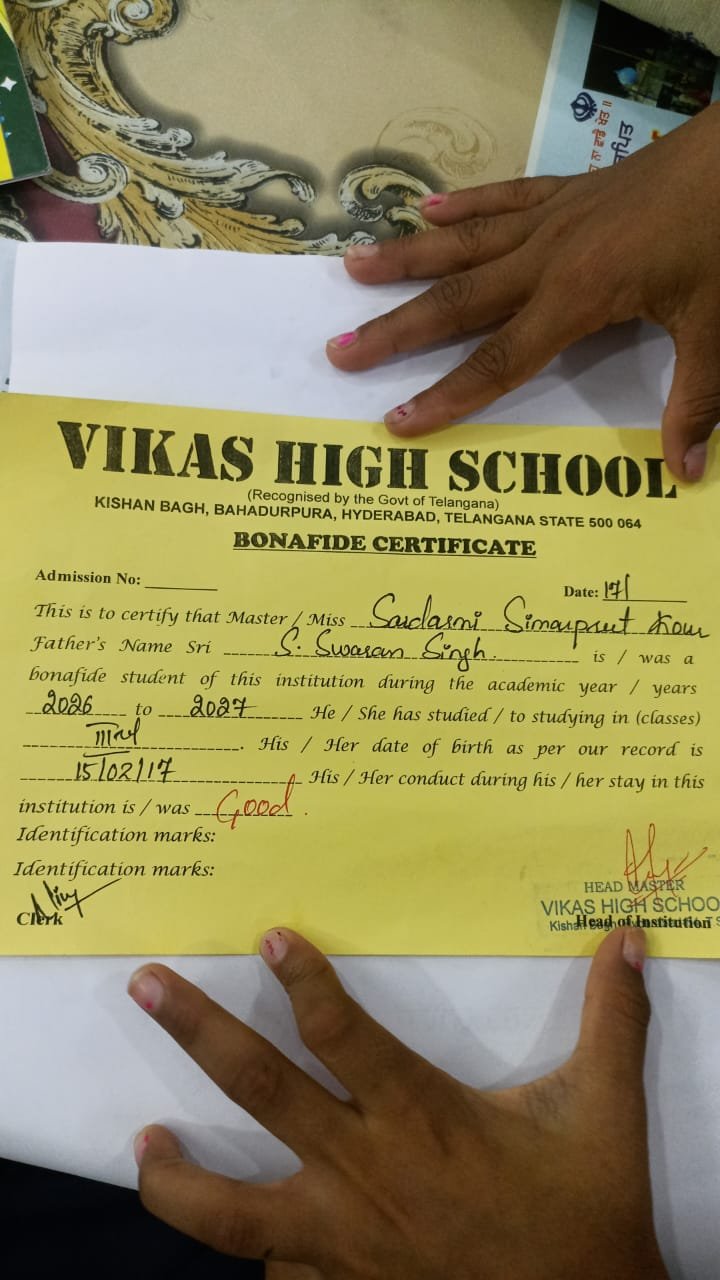 ਨਾ ਛਾਡੈ ਖੇਤ ॥
VIKAS HIGH SCHOOL
(Recognised by the Govt of Telangana)
KISHAN BAGH, BAHADURPURA, HYDERABAD, TELANGANA STATE 500 064
BONAFIDE CERTIFICATE
Admission No:
Date: 17/
This is to certify that Master / Miss Sardarni Simarpreet Kour
Father's Name Sri S. Swaran Singh. is / was a
bonafide student of this institution during the academic year / years
2026 to 2027 He / She has studied / to studying in (classes)
IIIrd. His / Her date of birth as per our record is
15/02/17 His / Her conduct during his / her stay in this
institution is / was Good.
Identification marks:
Identification marks:
HEAD MASTER
VIKAS HIGH SCHOO
Kishan Bagh
Clerk
Head of Institution